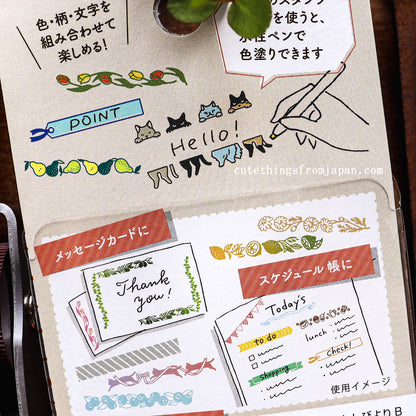 色・柄・文字を
組み合わせて
楽しめる!
を使うと、
水性ペンで
色塗りできます
POINT
Hello!
cutethingsfromjapan.com
メッセージカードに
Thank
you!
スケジュール帳に
Today's
to do
lunch
shopping
check!
使用イメージ